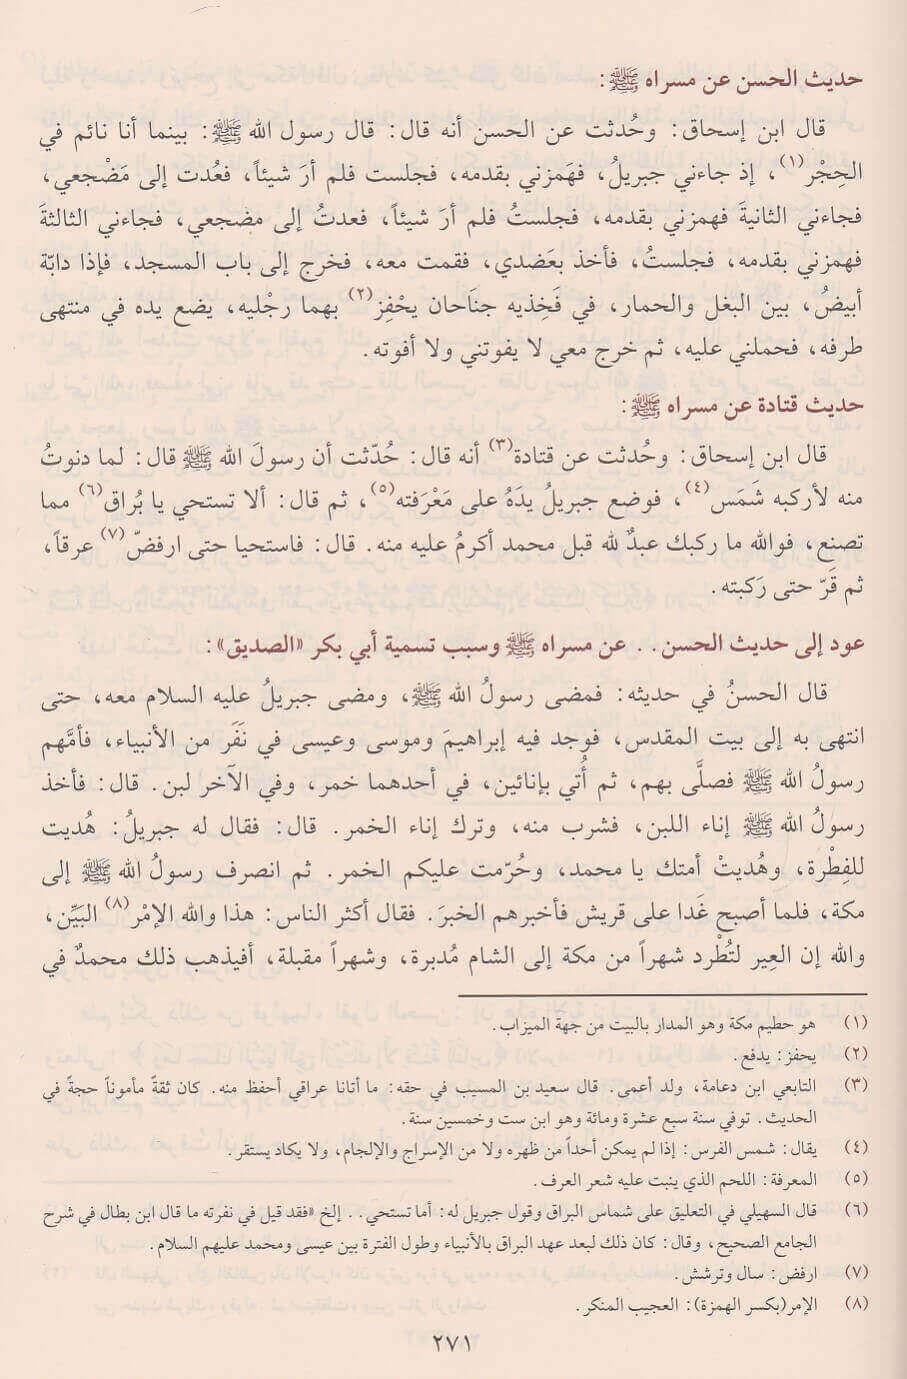 حديث الحسن عن مسراه ﷺ:
قال ابن إسحاق: وحُدثت عن الحسن أنه قال: قال رسول الله ﷺ: بينما أنا نائم في
الحِجْر(١)، إذ جاءني جبريلُ، فهَمزني بقدمه، فجلست فلم أرَ شيئاً، فعُدت إلى مَضْجعي،
فجاءني الثانيةَ فهمزني بقدمه، فجلستُ فلم أرَ شيئاً، فعدتُ إلى مضجعي، فجاءني الثالثةَ
فهمزني بقدمه، فجلستُ، فأخذ بعَضدي، فقمت معه، فخرج إلى باب المسجد، فإذا دابّة
أبيضُ، بين البغل والحمار، في فَخِذيه جنَاحان يحْفِز(٢) بهما رجْليه، يضع يده في منتهى
طرفه، فحملني عليه، ثم خرج معي لا يفوتني ولا أفوته.
حديث قتادة عن مسراه ﷺ:
قال ابن إسحاق: وحُدثت عن قتادة(٣) أنه قال: حُدّثت أن رسولَ الله ﷺ قال: لما دنوتُ
منه لأركبه شَمَس(٤)، فوضع جبريلُ يدَهُ على مَعْرَفته(٥)، ثم قال: ألا تستحي يا بُراق(٦) مما
تصنع، فوالله ما ركبك عبدٌ لله قبل محمد أكرمُ عليه منه. قال: فاستحيا حتى ارفضّ(٧) عرقاً،
ثم قَرّ حتى رَكبته.
عود إلى حديث الحسن.. عن مسراه ﷺ وسبب تسمية أبي بكر «الصديق»:
قال الحسنُ في حديثه: فمضى رسولُ الله ﷺ، ومضى جبريلُ عليه السلام معه، حتى
انتهى به إلى بيت المقدس، فوجد فيه إبراهيمَ وموسى وعيسى في نَفَر من الأنبياء، فأمَّهم
رسولُ الله ﷺ فصلَّى بهم، ثم أُتي بإنائين، في أحدهما خمر، وفي الآخر لبن. قال: فأخذ
رسولُ الله ﷺ إناء اللبن، فشرب منه، وترك إناء الخمر. قال: فقال له جبريلُ: هُديت
للفِطْرة، وهُديتْ أمتك يا محمد، وحُرّمت عليكم الخمر. ثم انصرف رسولُ الله ﷺ إلى
مكة، فلما أصبح غَدا على قريش فأخبرهم الخبرَ. فقال أكثر الناس: هذا والله الإمْر(٨) البَيِّن،
والله إن العِير لتُطْرد شهراً من مكة إلى الشام مُدبرة، وشهراً مقبلة، أفيذهب ذلك محمدٌ في
(١) هو حطيم مكة وهو المدار بالبيت من جهة الميزاب.
(٢) يحفز: يدفع.
(٣) التابعي ابن دعامة، ولد أعمى. قال سعيد بن المسيب في حقه: ما أتانا عراقي أحفظ منه. كان ثقةً مأموناً حجةً في
الحديث. توفي سنة سبع عشرة ومائة وهو ابن ست وخمسين سنة.
(٤) يقال: شمس الفرس: إذا لم يمكن أحداً من ظهره ولا من الإسراج والإلجام، ولا يكاد يستقر.
(٥) المعرفة: اللحم الذي ينبت عليه شعر العرف.
(٦) قال السهيلي في التعليق على شماس البراق وقول جبريل له: أما تستحي.. إلخ «فقد قيل في نفرته ما قال ابن بطال في شرح
الجامع الصحيح، وقال: كان ذلك لبعد عهد البراق بالأنبياء وطول الفترة بين عيسى ومحمد عليهم السلام.
(٧) ارفض: سال وترشش.
(٨) الإمر(بكسر الهمزة): العجيب المنكر.
٢٧١